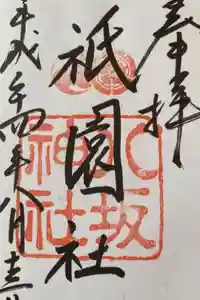 奉拝
祇園社
八坂
神社
平成二十四年八月